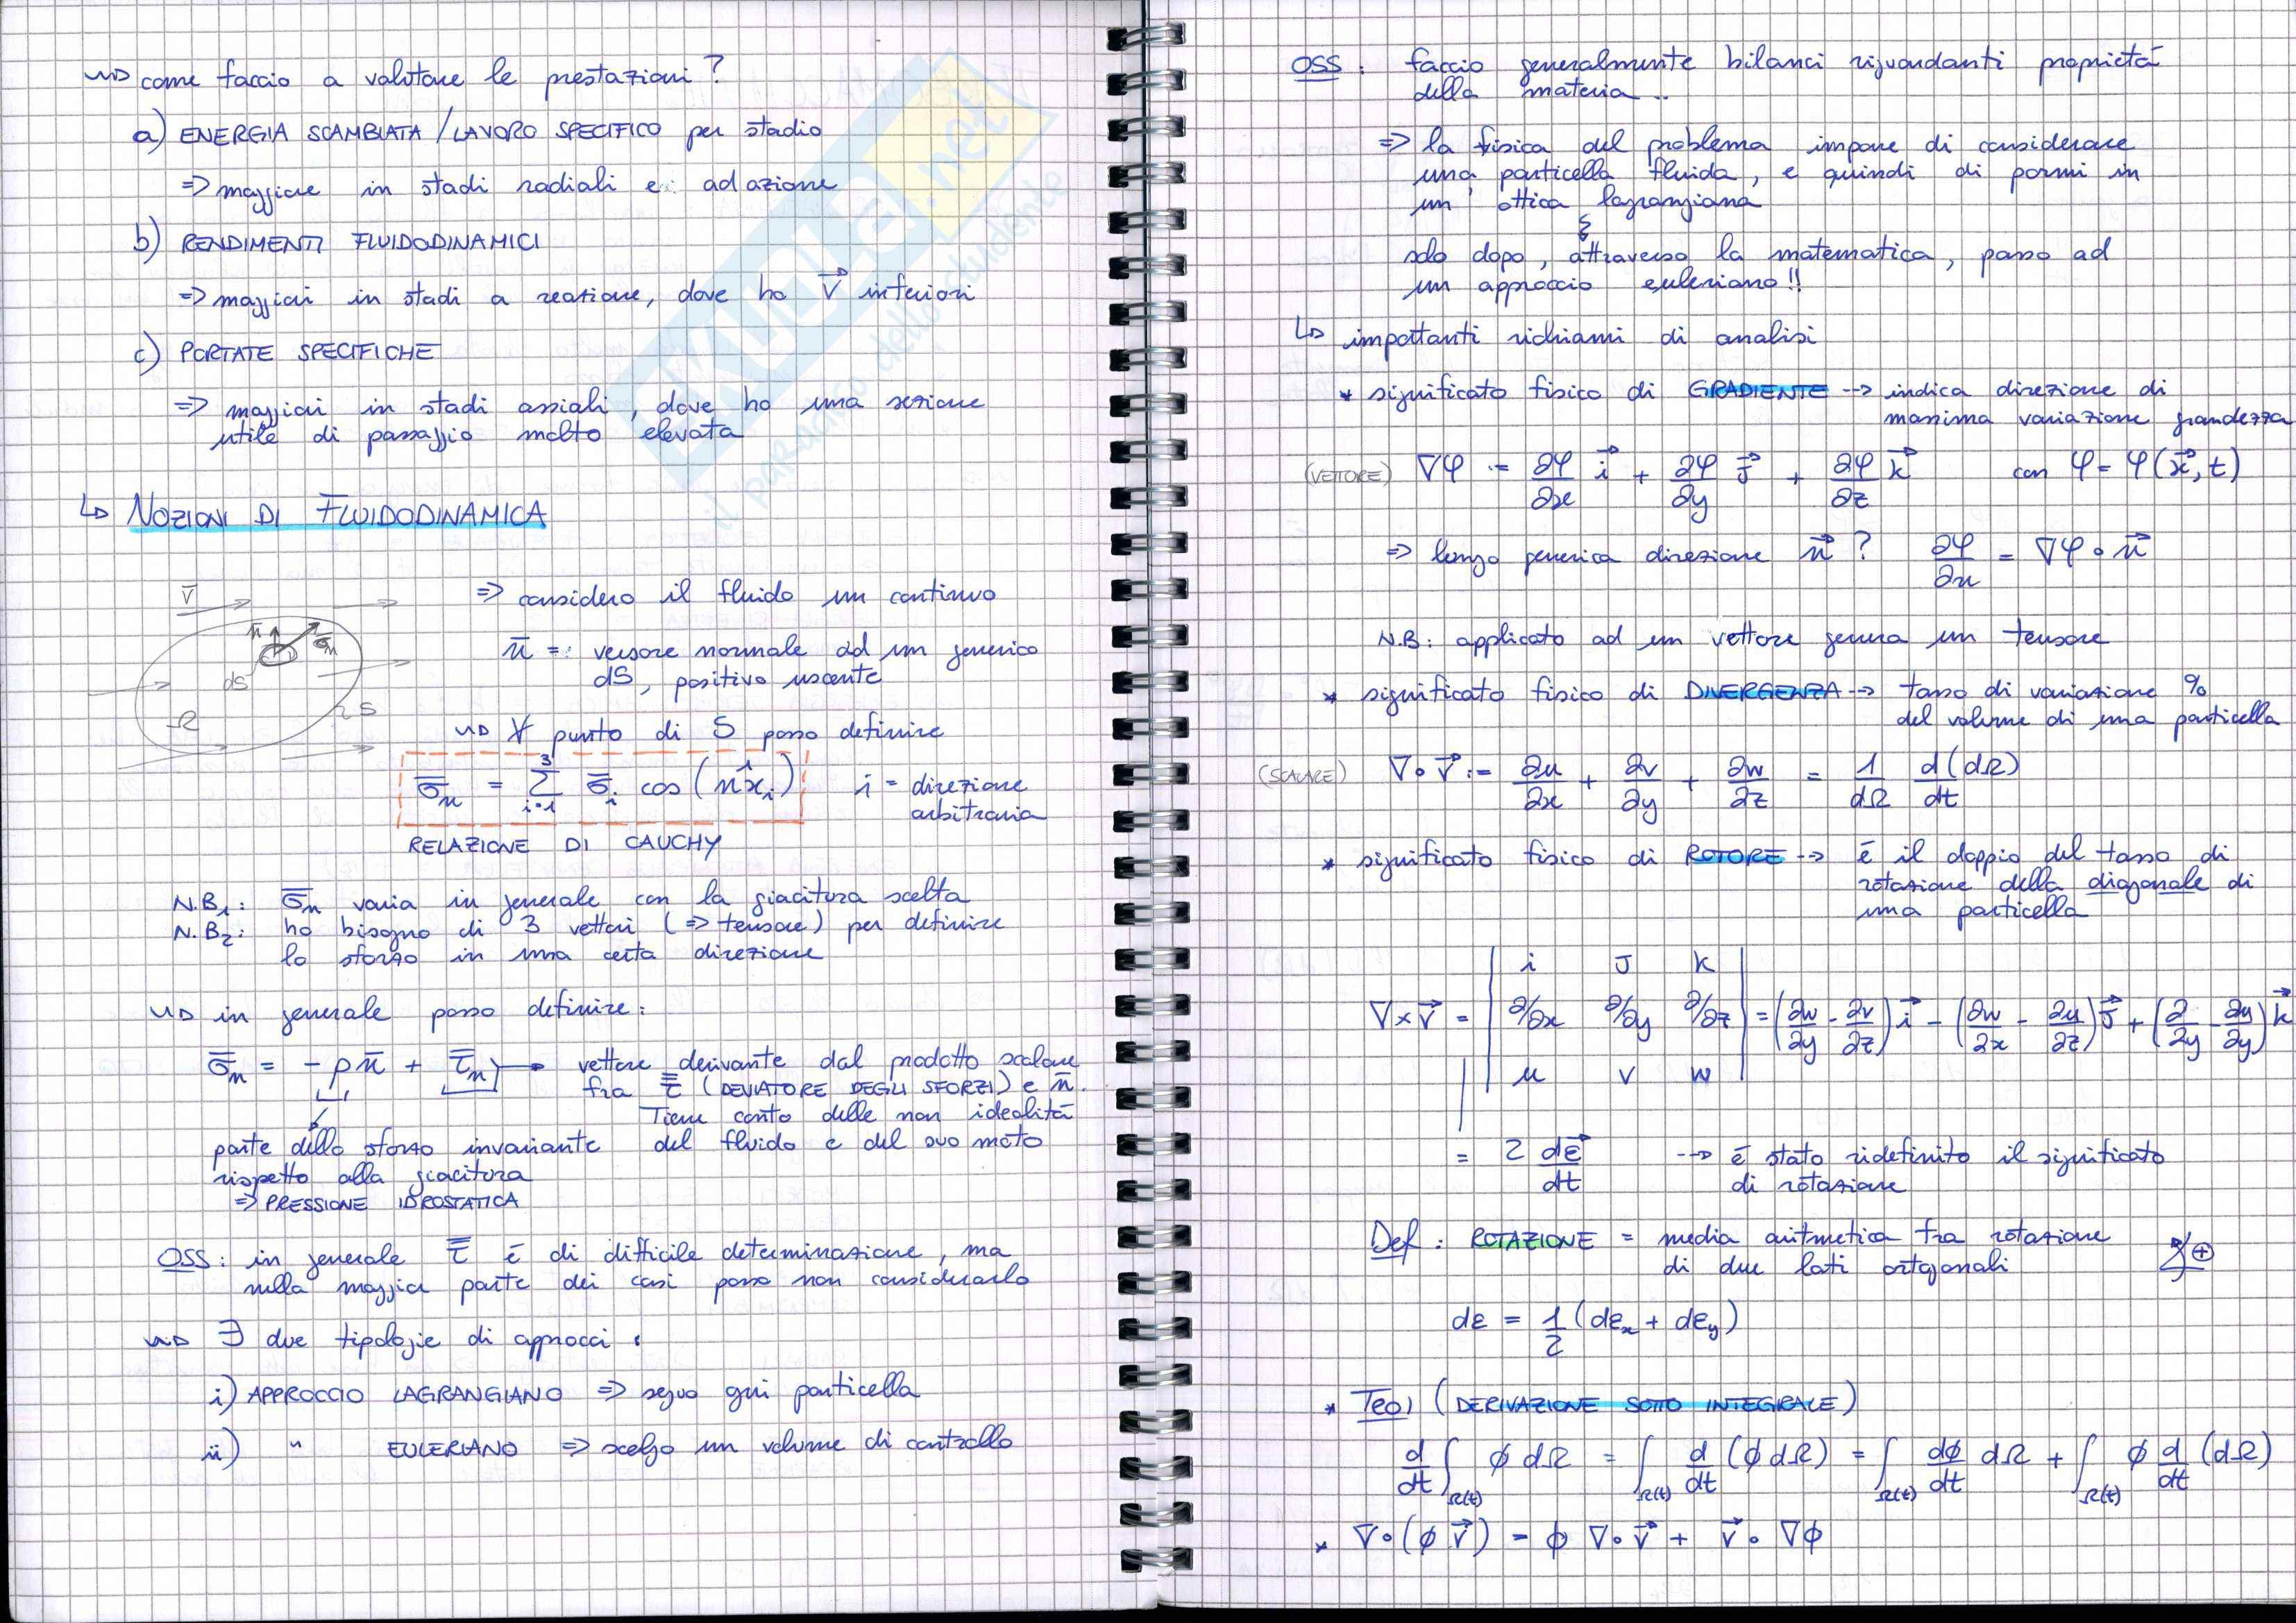 ~> come faccio a valutare le prestazioni?
a) ENERGIA SCAMBIATA / LAVORO SPECIFICO per stadio
=> maggiore in stadi radiali e ad azione
b) RENDIMENTI FLUIDODINAMICI
=> maggiori in stadi a reazione, dove ho v⃗ inferiori
c) PORTATE SPECIFICHE
=> maggiori in stadi assiali, dove ho una sezione
utile di passaggio molto elevata
↳ NOZIONI DI FLUIDODINAMICA
v̅
n̅
σ̅n
dS
Ω
S
=> considero il fluido un continuo
n̅ =: versore normale ad un generico
dS, positivo uscente
~> ∀ punto di S posso definire
σ̅n = Σ_{i=1}^{3} σ̅i cos(n^xi) i = direzione
arbitraria
RELAZIONE DI CAUCHY
N.B1: σ̅n varia in generale con la giacitura scelta
N.B2: ho bisogno di 3 vettori (=> tensore) per definire
lo sforzo in una certa direzione
~> in generale posso definire:
σ̅n = -pn̅ + τ̅n → vettore derivante dal prodotto scalare
fra τ̿ (DEVIATORE DEGLI SFORZI) e n̅.
Tiene conto delle non idealità
del fluido e del suo moto
parte dello sforzo invariante
rispetto alla giacitura
=> PRESSIONE IDROSTATICA
OSS: in generale τ̿ è di difficile determinazione, ma
nella maggior parte dei casi posso non considerarlo
~> ∃ due tipologie di approcci:
i) APPROCCIO LAGRANGIANO => seguo ogni particella
ii) " EULERIANO => scelgo un volume di controllo
OSS: faccio generalmente bilanci riguardanti proprietà
della materia..
=> la fisica del problema impone di considerare
una particella fluida, e quindi di pormi in
un' ottica lagrangiana
solo dopo, attraverso la matematica, passo ad
un approccio euleriano!!
↳ importanti richiami di analisi
* significato fisico di GRADIENTE --> indica direzione di
massima variazione grandezza
(VETTORE) ∇φ := ∂φ/∂x i⃗ + ∂φ/∂y j⃗ + ∂φ/∂z k⃗ con φ = φ(x⃗,t)
=> lungo generica direzione n⃗? ∂φ/∂n = ∇φ ∘ n⃗
N.B: applicato ad un vettore genera un tensore
* significato fisico di DIVERGENZA --> tasso di variazione %
del volume di una particella
(SCALARE) ∇∘v⃗ := ∂u/∂x + ∂v/∂y + ∂w/∂z = 1/dΩ d(dΩ)/dt
* significato fisico di ROTORE --> è il doppio del tasso di
rotazione della diagonale di
una particella
i j k
∇×v⃗ = | ∂/∂x ∂/∂y ∂/∂z | = (∂w/∂y - ∂v/∂z) i⃗ - (∂w/∂x - ∂u/∂z) j⃗ + (∂/∂y - ∂u/∂y) k⃗
u v w
= 2 dε⃗/dt --> è stato ridefinito il significato
di rotazione
Def: ROTAZIONE = media aritmetica fra rotazione
di due lati ortogonali
⊕
dε = 1/2 (dεx + dεy)
* Teo) (DERIVAZIONE SOTTO INTEGRALE)
d/dt ∫Ω(t) ϕ dΩ = ∫Ω(t) d/dt (ϕ dΩ) = ∫Ω(t) dϕ/dt dΩ + ∫Ω(t) ϕ d/dt (dΩ)
* ∇∘(ϕ v⃗) = ϕ ∇∘v⃗ + v⃗ ∘ ∇ϕ